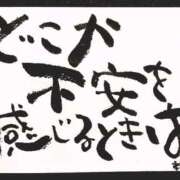 どこか
不安を
感じるときは